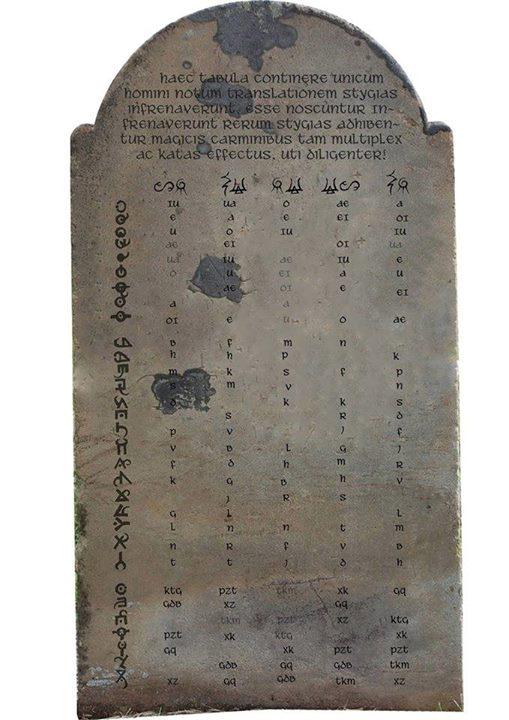 haec tabula continere unicum
homini notum translationem stygias
infrenaverunt, esse noscuntur in-
frenaverunt rerum stygias adhiben-
tur magicis carminibus tam multiplex
ac katas effectus, uti diligenter!
iu ua o ae a
e a e oi
u o iu iu
ae ei oi ua
ua iu ae iu e
o u ei a u
ae oi e ei
a a
oi e u o ae
b f m n
h h p k
m k s f p
s m v n
d k k s
s r d
p v j f
v b l g j
f d h m r
k g b h v
j r s
g l l
l n n t m
n r f v b
t t j d h
ktg pzt tkm xk gq
gdb xz gq
tkm pzt xz ktg
pzt xk ktg xk
gq xk pzt pzt
gdb gq gdb tkm
xz gq gdb tkm xz